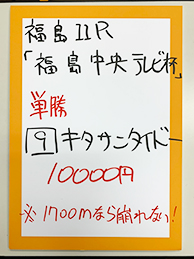 福島11R
「福島中央テレビ杯」
単勝
9 キタサンタイドー
10000円
※1700mなら崩れない!